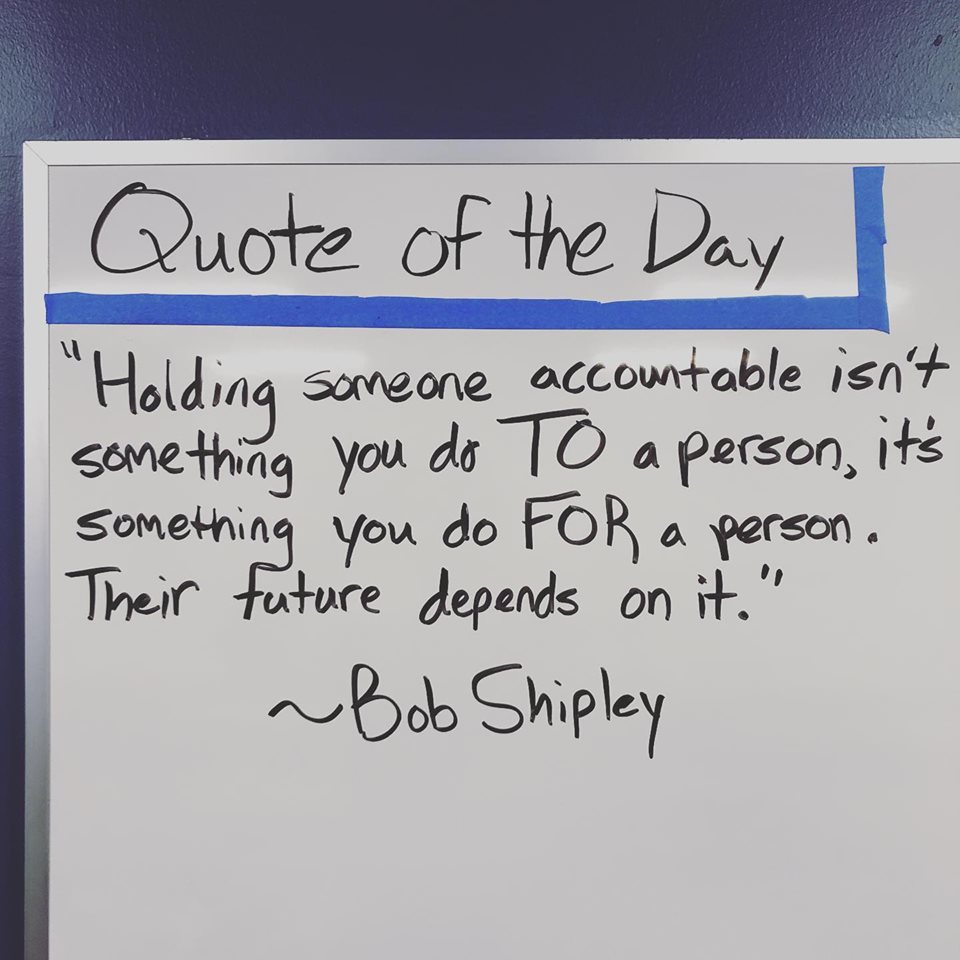 Quote of the Day
"Holding someone accountable isn't
something you do TO a person, it's
something you do FOR a person.
Their future depends on it."
~Bob Shipley